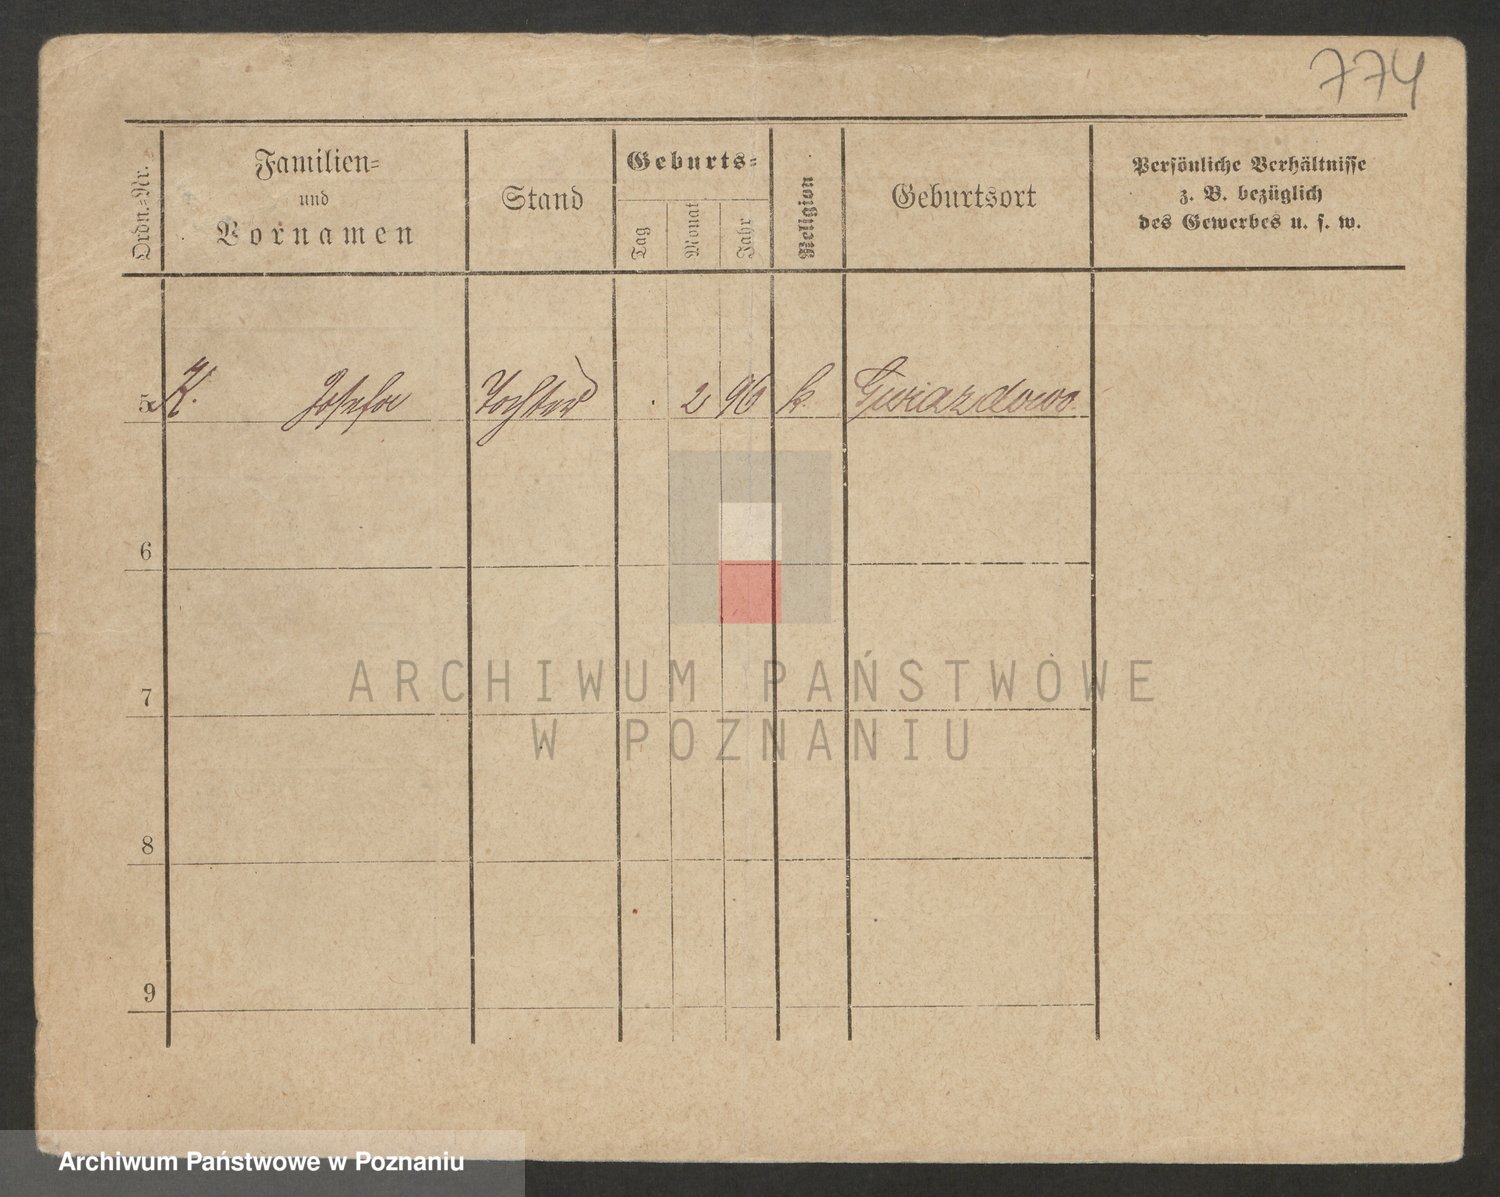 774
Ordn.-Nr.
Familien-
und
Vornamen
Stand
Geburts-
Tag
Monat
Jahr
Religion
Geburtsort
Persönliche Verhältnisse
z. B. bezüglich
des Gewerbes u. s. w.
5 K. Josefa Tochter 2 96 k. Gwiazdowo
6
7
8
9
ARCHIWUM PAŃSTWOWE
W POZNANIU
Archiwum Państwowe w Poznaniu